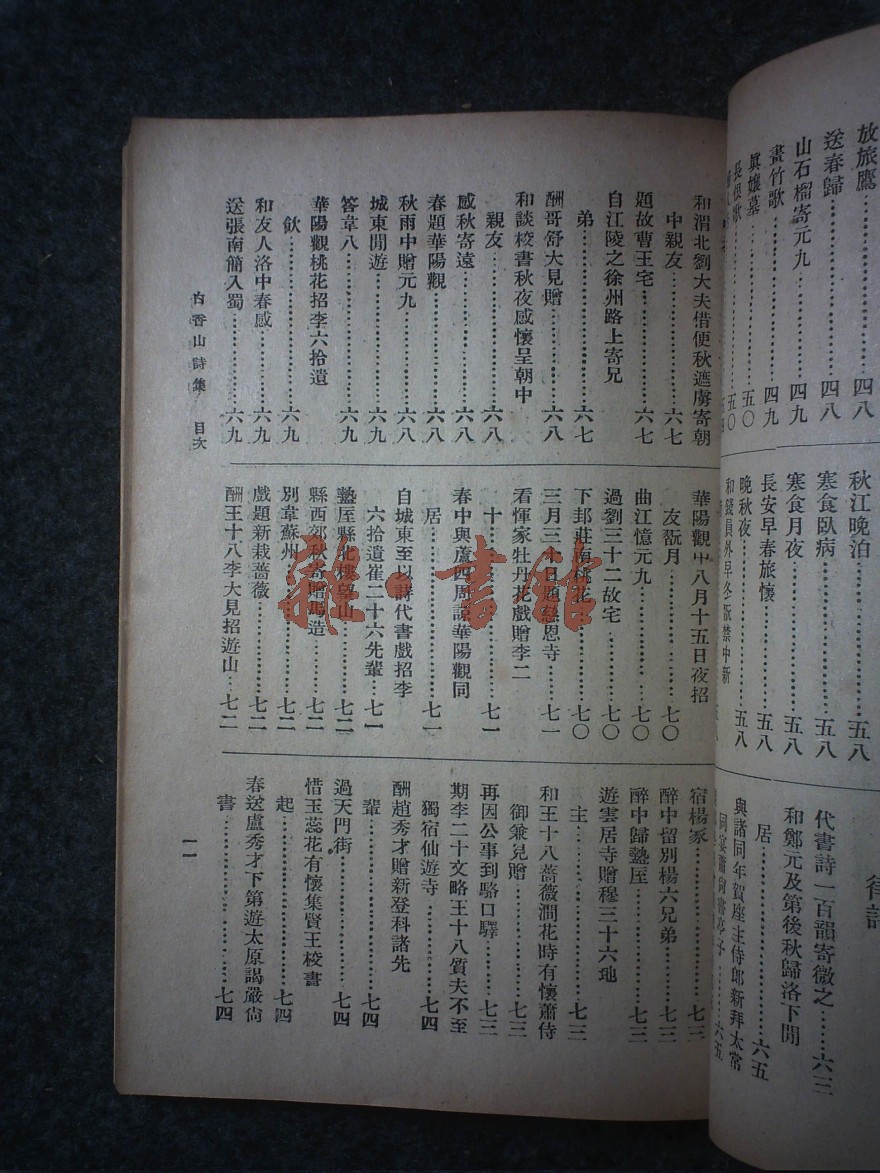 放旅鷹……四八
送春歸……四八
山石榴寄元九……四九
畫竹歌……四九
真孃墓……五〇
長恨歌……五〇
秋江晚泊……五八
寒食臥病……五八
寒食月夜……五八
長安早春旅懷……五八
晚秋夜……五八
和錢員外早冬翫禁中新
代書詩一百韻寄微之……六三
和鄭元及第後秋歸洛下閒
居……六五
與諸同年賀座主侍郎新拜太常
同宴蕭尚書亭子……六五
和渭北劉大夫借便秋遮虜寄朝
中親友……六七
題故曹王宅……六七
自江陵之徐州路上寄兄
弟……六七
酬哥舒大見贈……六八
和談校書秋夜感懷呈朝中
親友……六八
感秋寄遠……六八
春題華陽觀……六八
秋雨中贈元九……六八
城東閒遊……六九
答韋八……六九
華陽觀桃花招李六拾遺
飲……六九
和友人洛中春感……六九
送張南簡入蜀……六九
華陽觀中八月十五日夜招
友翫月……七〇
曲江憶元九……七〇
過劉三十二故宅……七〇
下邽莊南桃花……七〇
三月三十日題慈恩寺……七一
看惲家牡丹花戲贈李二
十……七一
春中與盧四周諒華陽觀同
居……七一
自城東至以詩代書戲招李
六拾遺崔二十六先輩……七一
盩厔縣北樓望山……七二
縣西郊秋寄贈馬造……七二
別韋蘇州……七二
戲題新栽薔薇……七二
酬王十八李大見招遊山……七二
宿楊家……七三
醉中留別楊六兄弟……七三
醉中歸盩厔……七三
遊雲居寺贈穆三十六地
主……七三
和王十八薔薇澗花時有懷蕭侍
御兼見贈……七三
再因公事到駱口驛……七三
期李二十文略王十八質夫不至
獨宿仙遊寺……七四
酬趙秀才贈新登科諸先
輩……七四
過天門街……七四
惜玉蕊花有懷集賢王校書
起……七四
春送盧秀才下第遊太原謁嚴尚
書……七四
白香山詩集 目次
一一
雜·書館